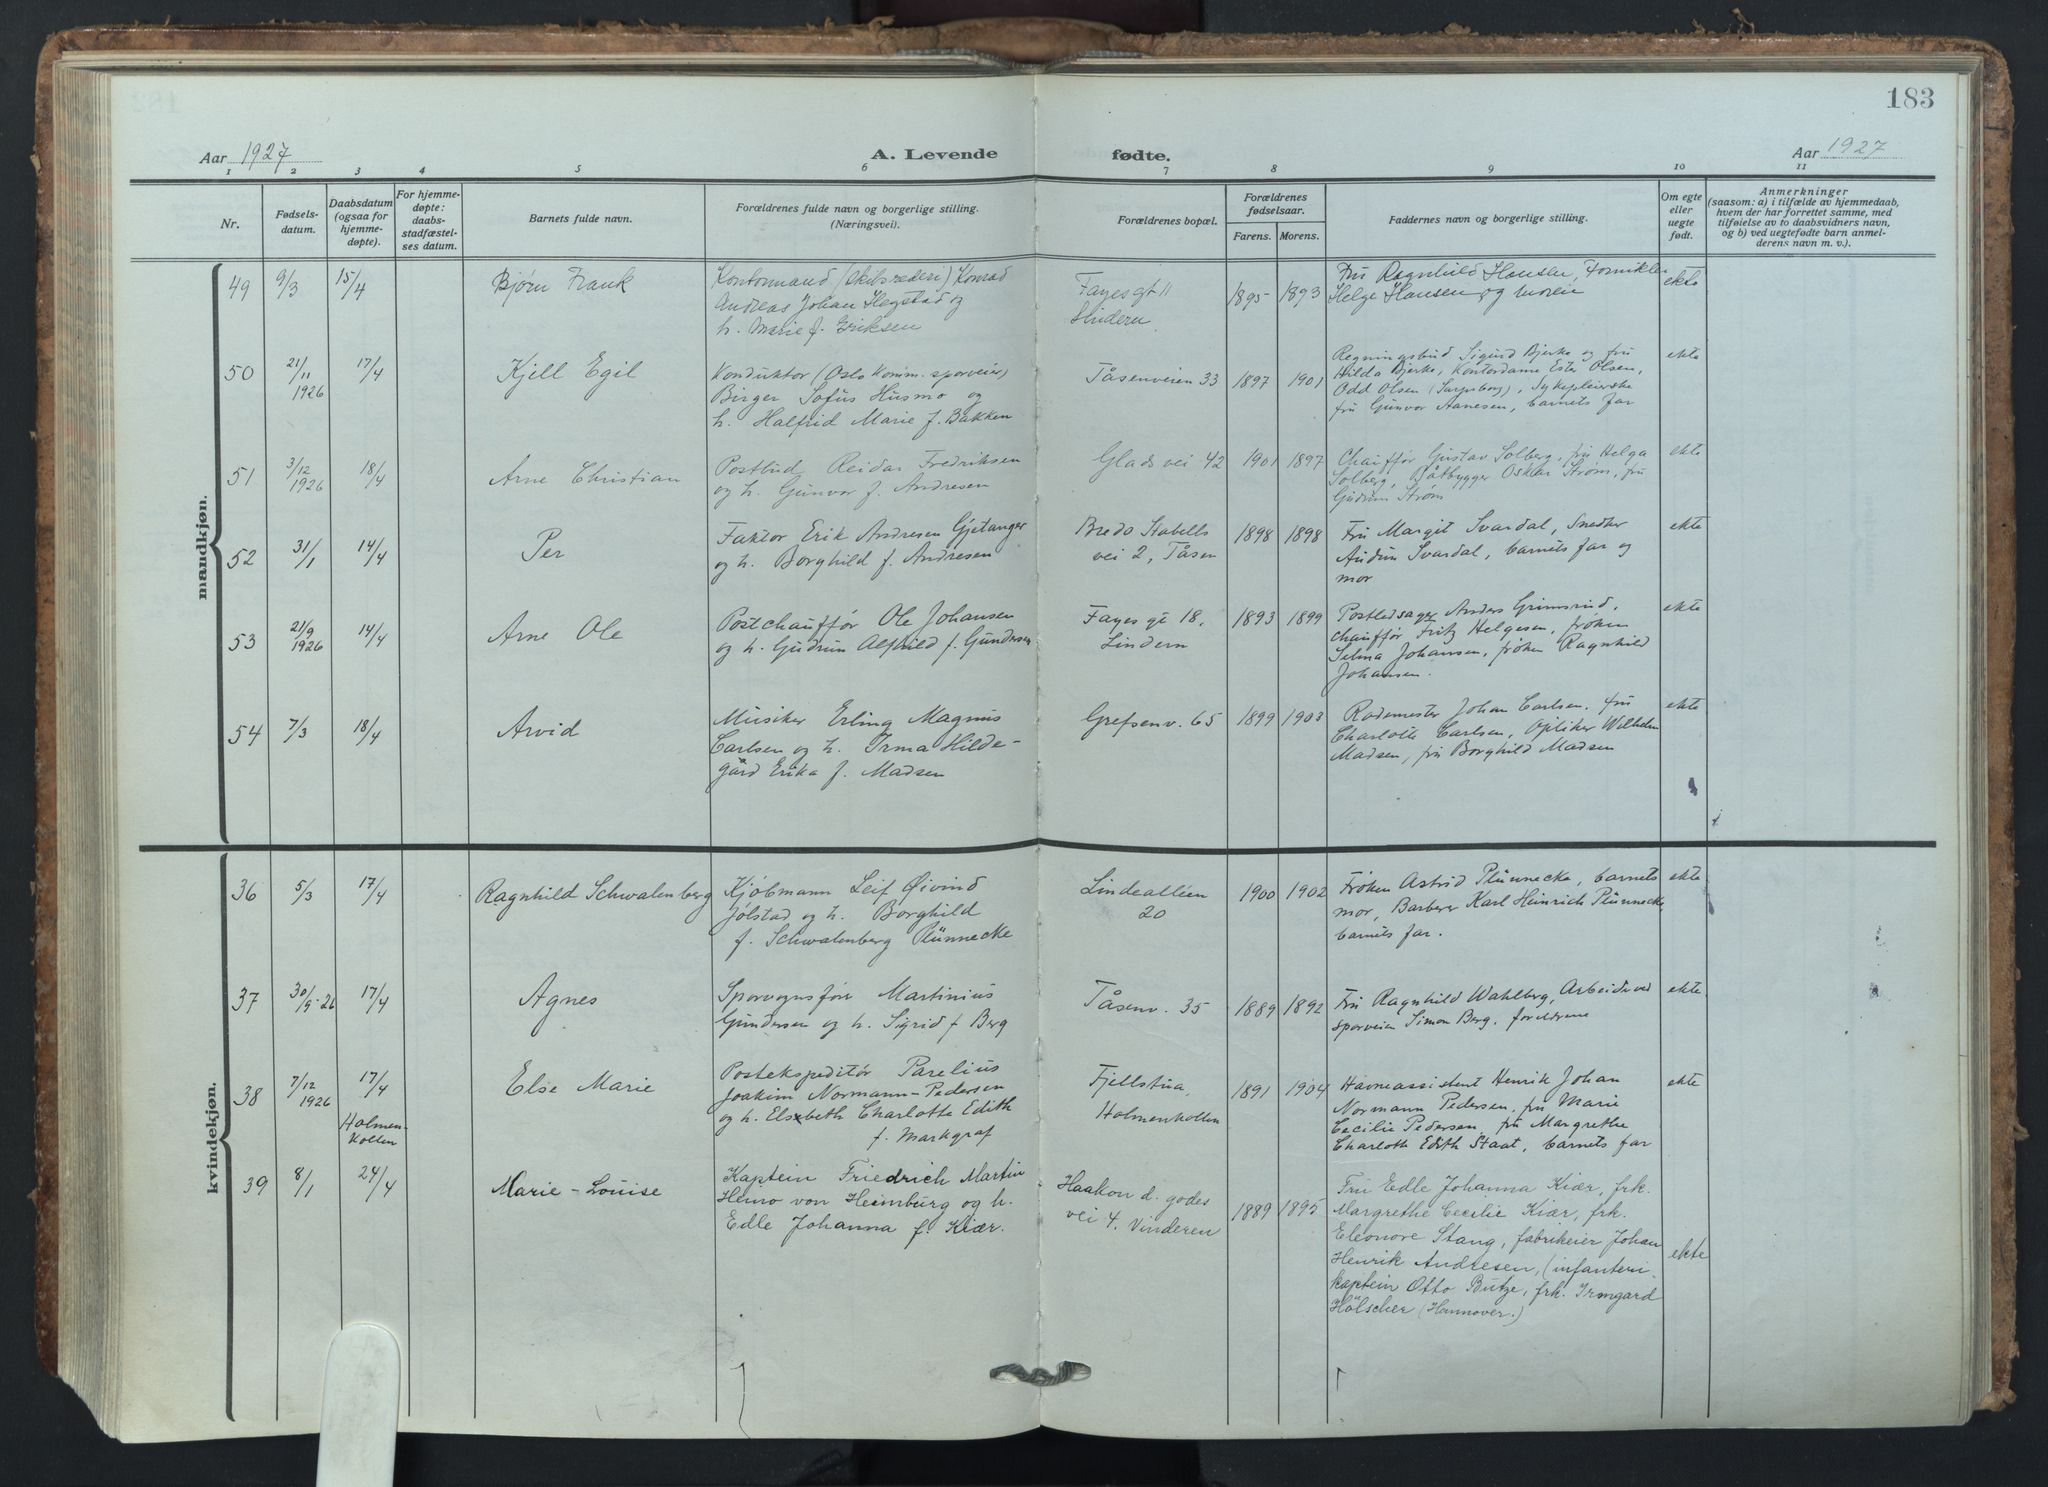 183
Aar 1927
A. Levende
fødte.
Aar 1927
1 2 3 4 5 6 7 8 9 10 11
Nr.
Fødsels-
datum.
Daabsdatum
(ogsaa for
hjemme-
døpte).
For hjemme-
døpte:
daabs-
stadfæstel-
ses datum.
Barnets fulde navn.
Forældrenes fulde navn og borgerlige stilling.
(Næringsvei).
Forældrenes bopæl.
Forældrenes
fødselsaar.
Farens. Morens.
Faddernes navn og borgerlige stilling.
Om egte
eller
uegte
født.
Anmerkninger
(saasom: a) i tilfælde av hjemmedaab,
hvem der har forrettet samme, med
tilføielse av to daabsvidners navn,
og b) ved uegtefødte barn anmel-
derens navn m. v.).
mandkjøn.
49
9/3
15/4
Bjørn Frank
Kontormand (skibsrederi) Konrad
Andreas Johan Hegstad og
h. Marie f. Eriksen
Fayesgt 11
Lindern
1895 1893
Fru Ragnhild Hansen,
Helge Hansen og moren
ekte
50
21/11
1926
17/4
Kjell Egil
Konduktør (Oslo komm. sporveier)
Birger Sofus Husmo og
h. Halfrid Marie f. Bakken
Tåsenveien 33
1897 1901
Regningsbud Sigurd Bjerke og fru
Hilda Bjerke, Kontordame Ester Olsen,
Odd Olsen (Sarpsborg), Sykepleierske
fru Gunvor Aanesen, barnets far
ekte
51
3/12
1926
18/4
Arne Christian
Postbud Reidar Fredriksen
og h. Gunvor f. Andresen
Glads vei 42
1901 1897
Chauffør Gustav Solberg, fru Helga
Solberg, Båtbygger Oskar Strøm, fru
Gudrun Strøm
ekte
52
31/1
14/4
Per
Faktor Erik Andresen Gjetanger
og h. Borghild f. Andresen
Bredo Stabells
vei 2, Tåsen
1898 1898
Fru Margit Svardal, Snedker
Audun Svardal, barnets far og
mor
ekte
53
21/9
1926
14/4
Arne Ole
Postchauffør Ole Johansen
og h. Gudrun Alfhild f. Gundersen
Fayes gt 18,
Lindern
1893 1899
Postledsager Anders Grimsrud,
chauffør Fritz Helgesen, frøken
Selma Johansen, frøken Ragnhild
Johansen.
ekte
54
7/3
18/4
Arvid
Musiker Erling Magnus
Carlsen og h. Irma Hilde-
gård Erika f. Madsen
Grefsenv. 65
1899 1903
Rodemester Johan Carlsen, fru
Charlotte Carlsen, Optiker Wilhelm
Madsen, fru Borghild Madsen
ekte
kvindekjøn.
36
5/3
17/4
Ragnhild Schwalenberg
Kjøbmann Leif Øivind
Jølstad og h. Borghild
f. Schwalenberg Plünnecke
Lindealléen
20
1900 1902
Frøken Astrid Plünnecke, barnets
mor, Barberer Karl Heinrich Plünnecke,
barnets far.
ekte
37
30/9-26
17/4
Agnes
Sporvognsfører Martinius
Gundersen og h. Sigrid f Berg
Tåsenv. 35
1889 1892
Fru Ragnhild Wahlberg, Arbeider ved
sporveien Simon Berg, foreldrene
ekte
38
7/12
1926
17/4
Holmen-
kollen
Else Marie
Postekspeditør Parelius
Joakim Normann-Pedersen
og h. Elsbeth Charlotte Edith
f. Markgraf
Fjellstua,
Holmenkollen
1891 1904
Havneassistent Henrik Johan
Normann Pedersen, fru Marie
Cecilie Pedersen, fru Margrethe
Charloth Edith Staat, barnets far
ekte
39
8/1
24/4
Marie-Louise
Kaptein Friedrich Martin
Heino von Heimburg og h.
Edle Johanna f. Kiær.
Haakon d. godes
vei 4, Vinderen
1889 1895
Fru Edle Johanna Kiær, frk.
Margrethe Cecilie Kiær, frk.
Eleonore Stang, fabrikeier Johan
Henrik Andresen, (infanteri
kaptein Otto Butze, frk. Irmgard
Hölscher (Hannover.)
ekte